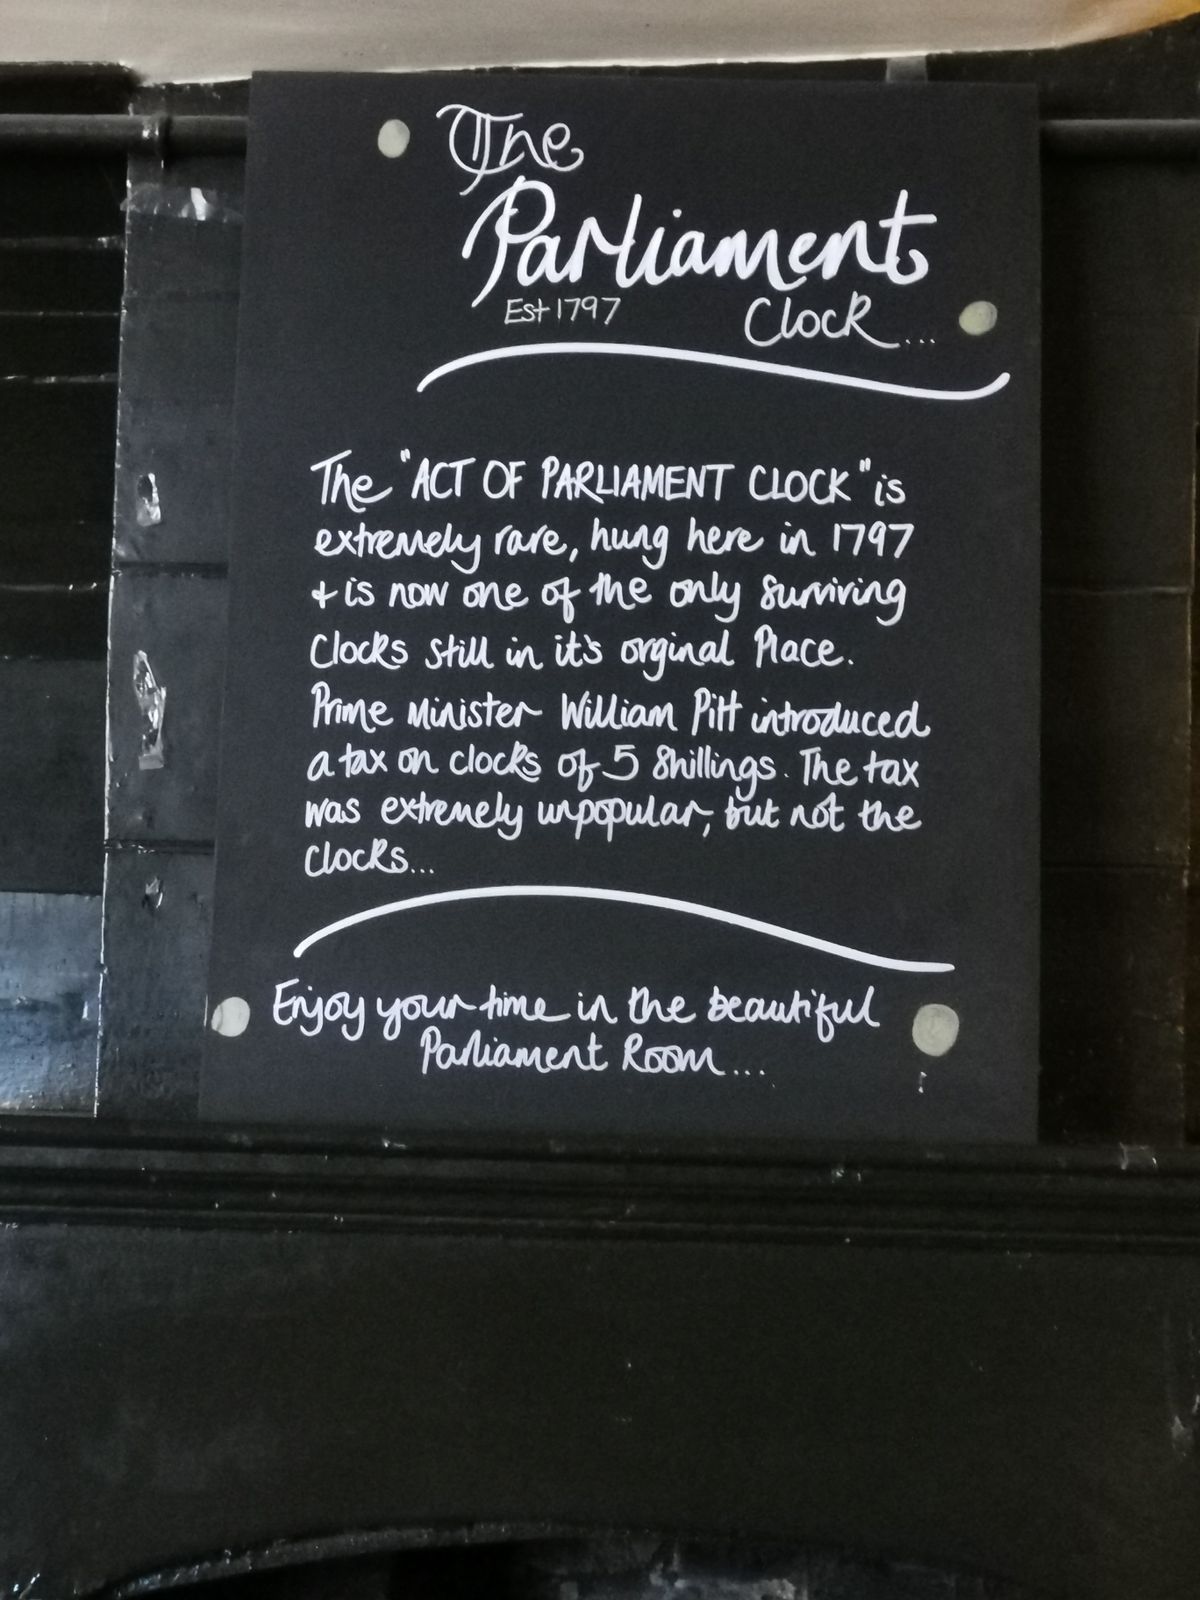 The
Parliament
Est 1797 Clock...
The "ACT OF PARLIAMENT CLOCK" is
extremely rare, hung here in 1797
+ is now one of the only surviving
Clocks still in it's orginal Place.
Prime Minister William Pitt introduced
a tax on clocks of 5 Shillings. The tax
was extremely unpopular, but not the
Clocks...
Enjoy your time in the beautiful
Parliament Room...